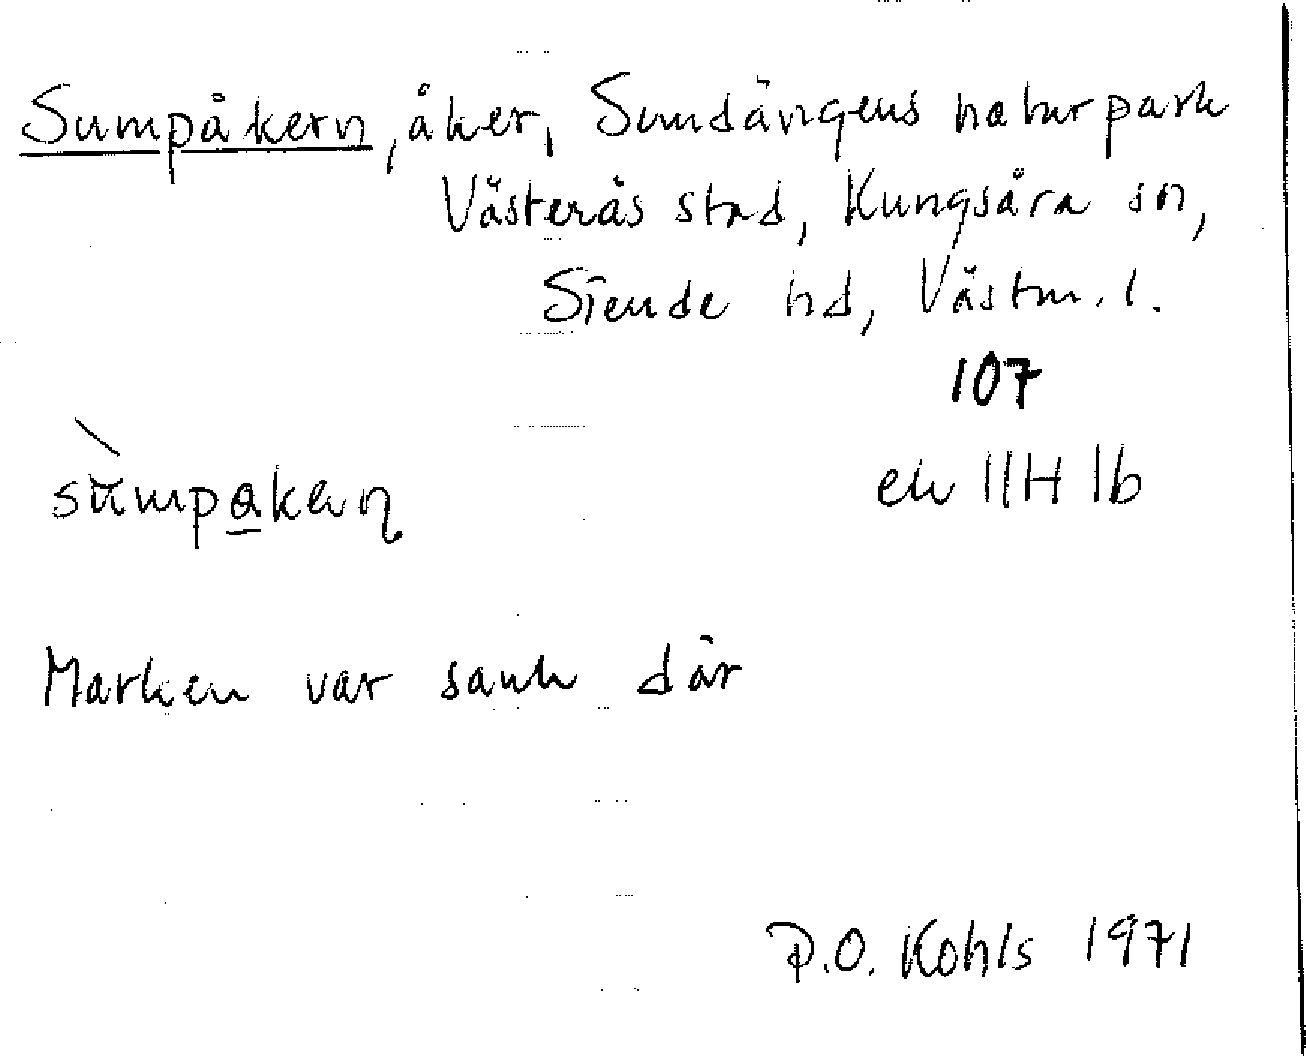 Sumpåkern, åker, Sundängens naturpark
Västerås stad, Kungsåra sn,
Siende hd, Västm. l.
107
ek 11H 1b
sùmpakaɳ
Marken var sank där
P.O. Kohls 1971